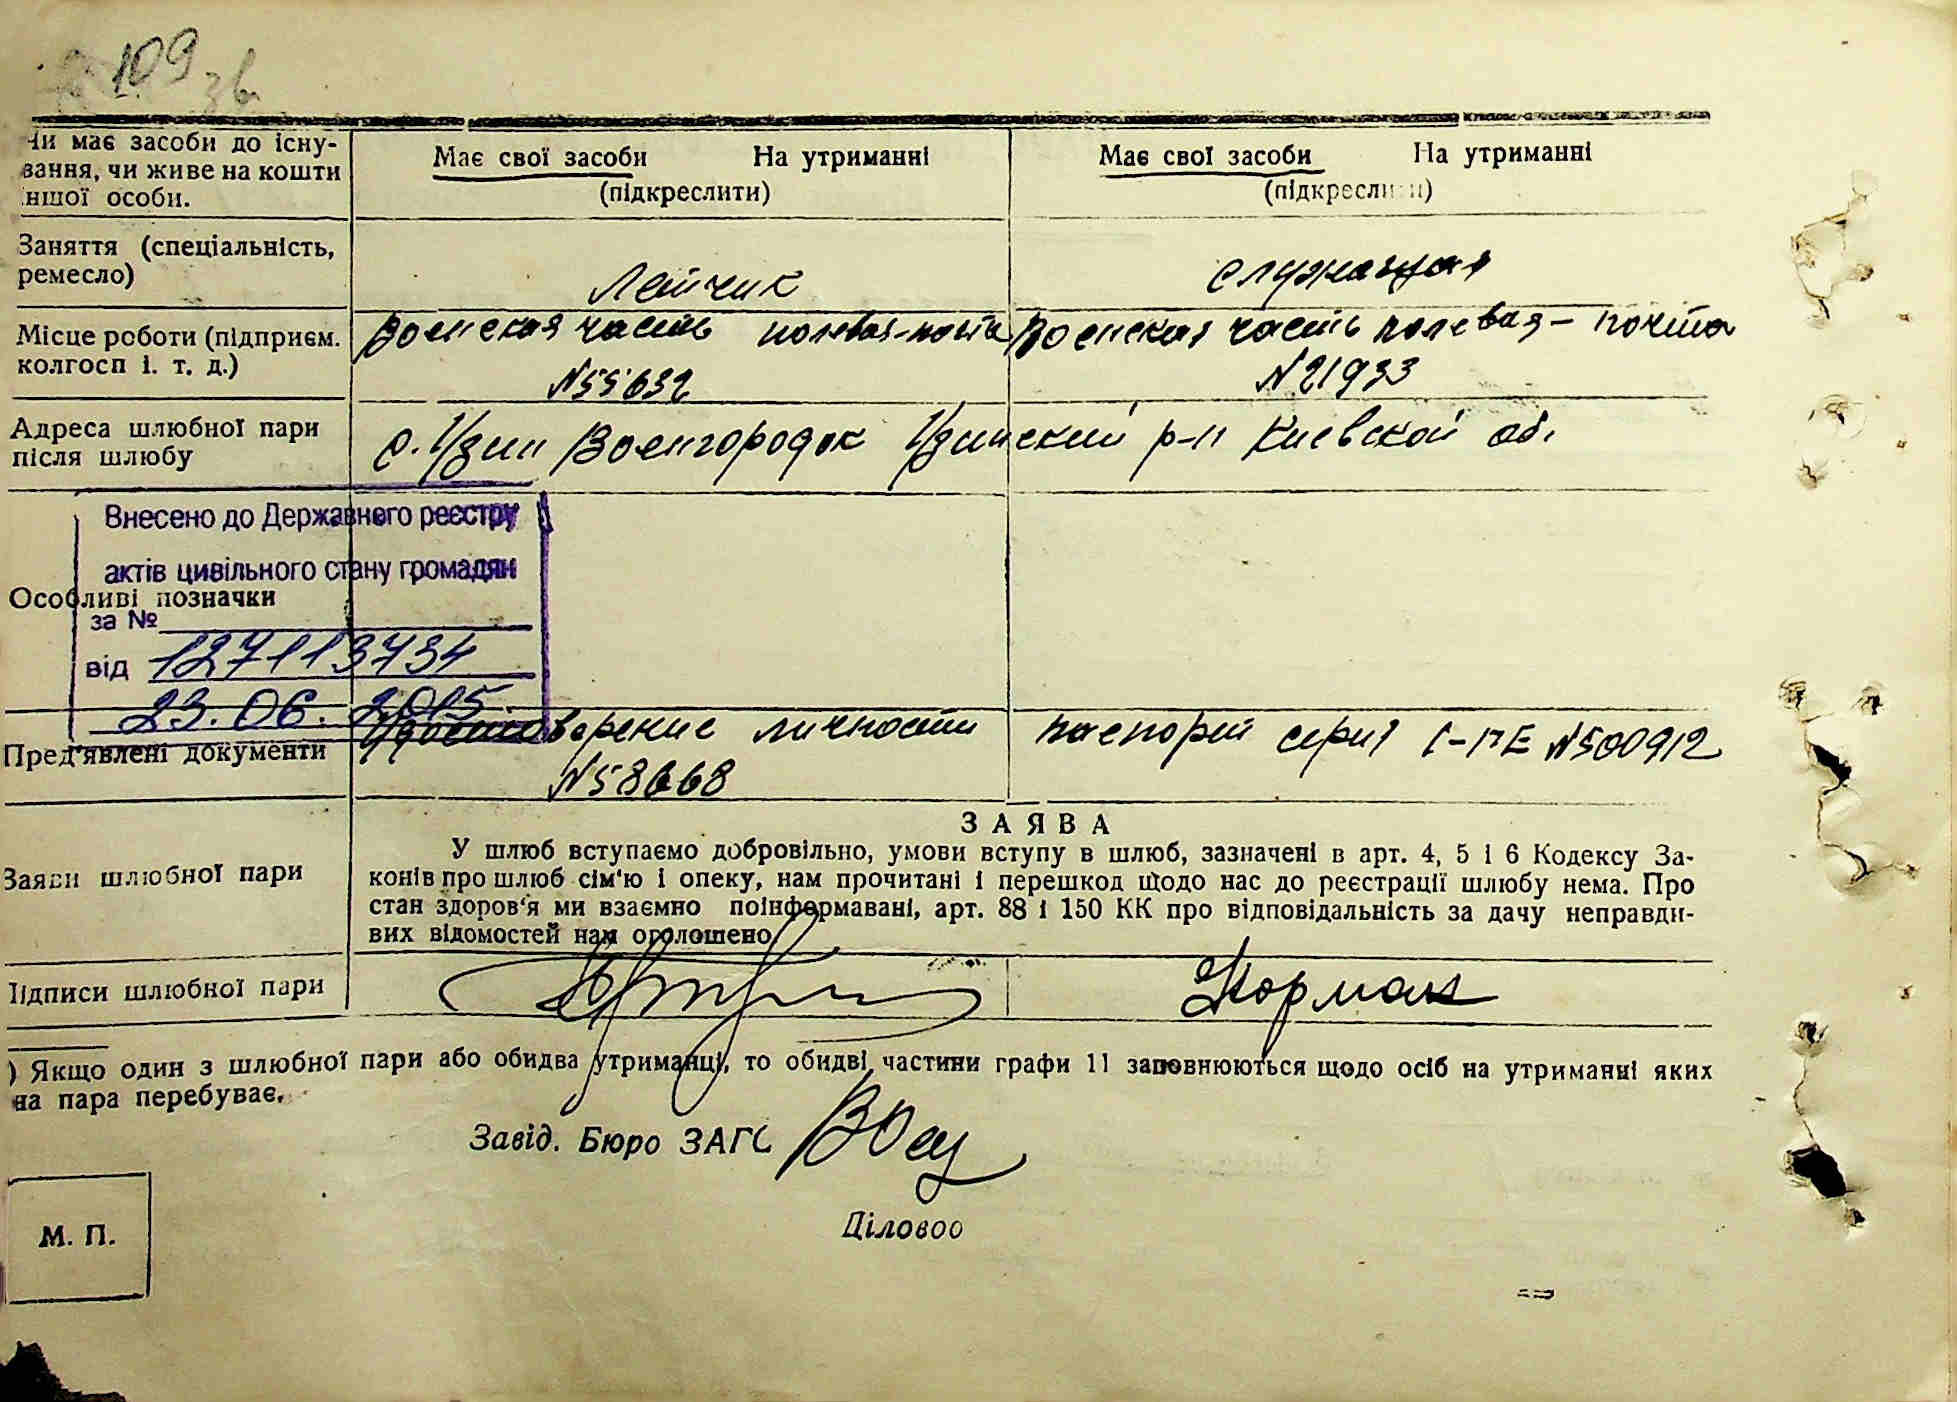 109 зв
Чи має засоби до існу-
вання, чи живе на кошти
іншої особи.
Має свої засоби На утриманні
(підкреслити)
Має свої засоби На утриманні
(підкреслити)
Заняття (спеціальність,
ремесло)
Летчик
служащая
Місце роботи (підприєм.
колгосп і. т. д.)
Военская часть полевая-почта
N55632
Военская часть полевая-почта
N21933
Адреса шлюбної пари
після шлюбу
с. Узин Военгородок Узинский р-н Киевской об.
Особливі позначки
Внесено до Державного реєстру
актів цивільного стану громадян
за №
від 127113734
23.06.2015.
Пред'явлені документи
Удостоверение личности
N58668
паспорт серия I-ПЕ N500912
Заяви шлюбної пари
ЗАЯВА
У шлюб вступаємо добровільно, умови вступу в шлюб, зазначені в арт. 4, 5 і 6 Кодексу За-
конів про шлюб сім'ю і опеку, нам прочитані і перешкод щодо нас до реєстрації шлюбу нема. Про
стан здоров'я ми взаємно поінформавані, арт. 88 і 150 КК про відповідальність за дачу неправди-
вих відомостей нам оголошено
Підписи шлюбної пари
) Якщо один з шлюбної пари або обидва утриманці, то обидві частини графи 11 заповнюються щодо осіб на утриманні яких
на пара перебуває.
Завід. Бюро ЗАГС
Діловоо
М. П.